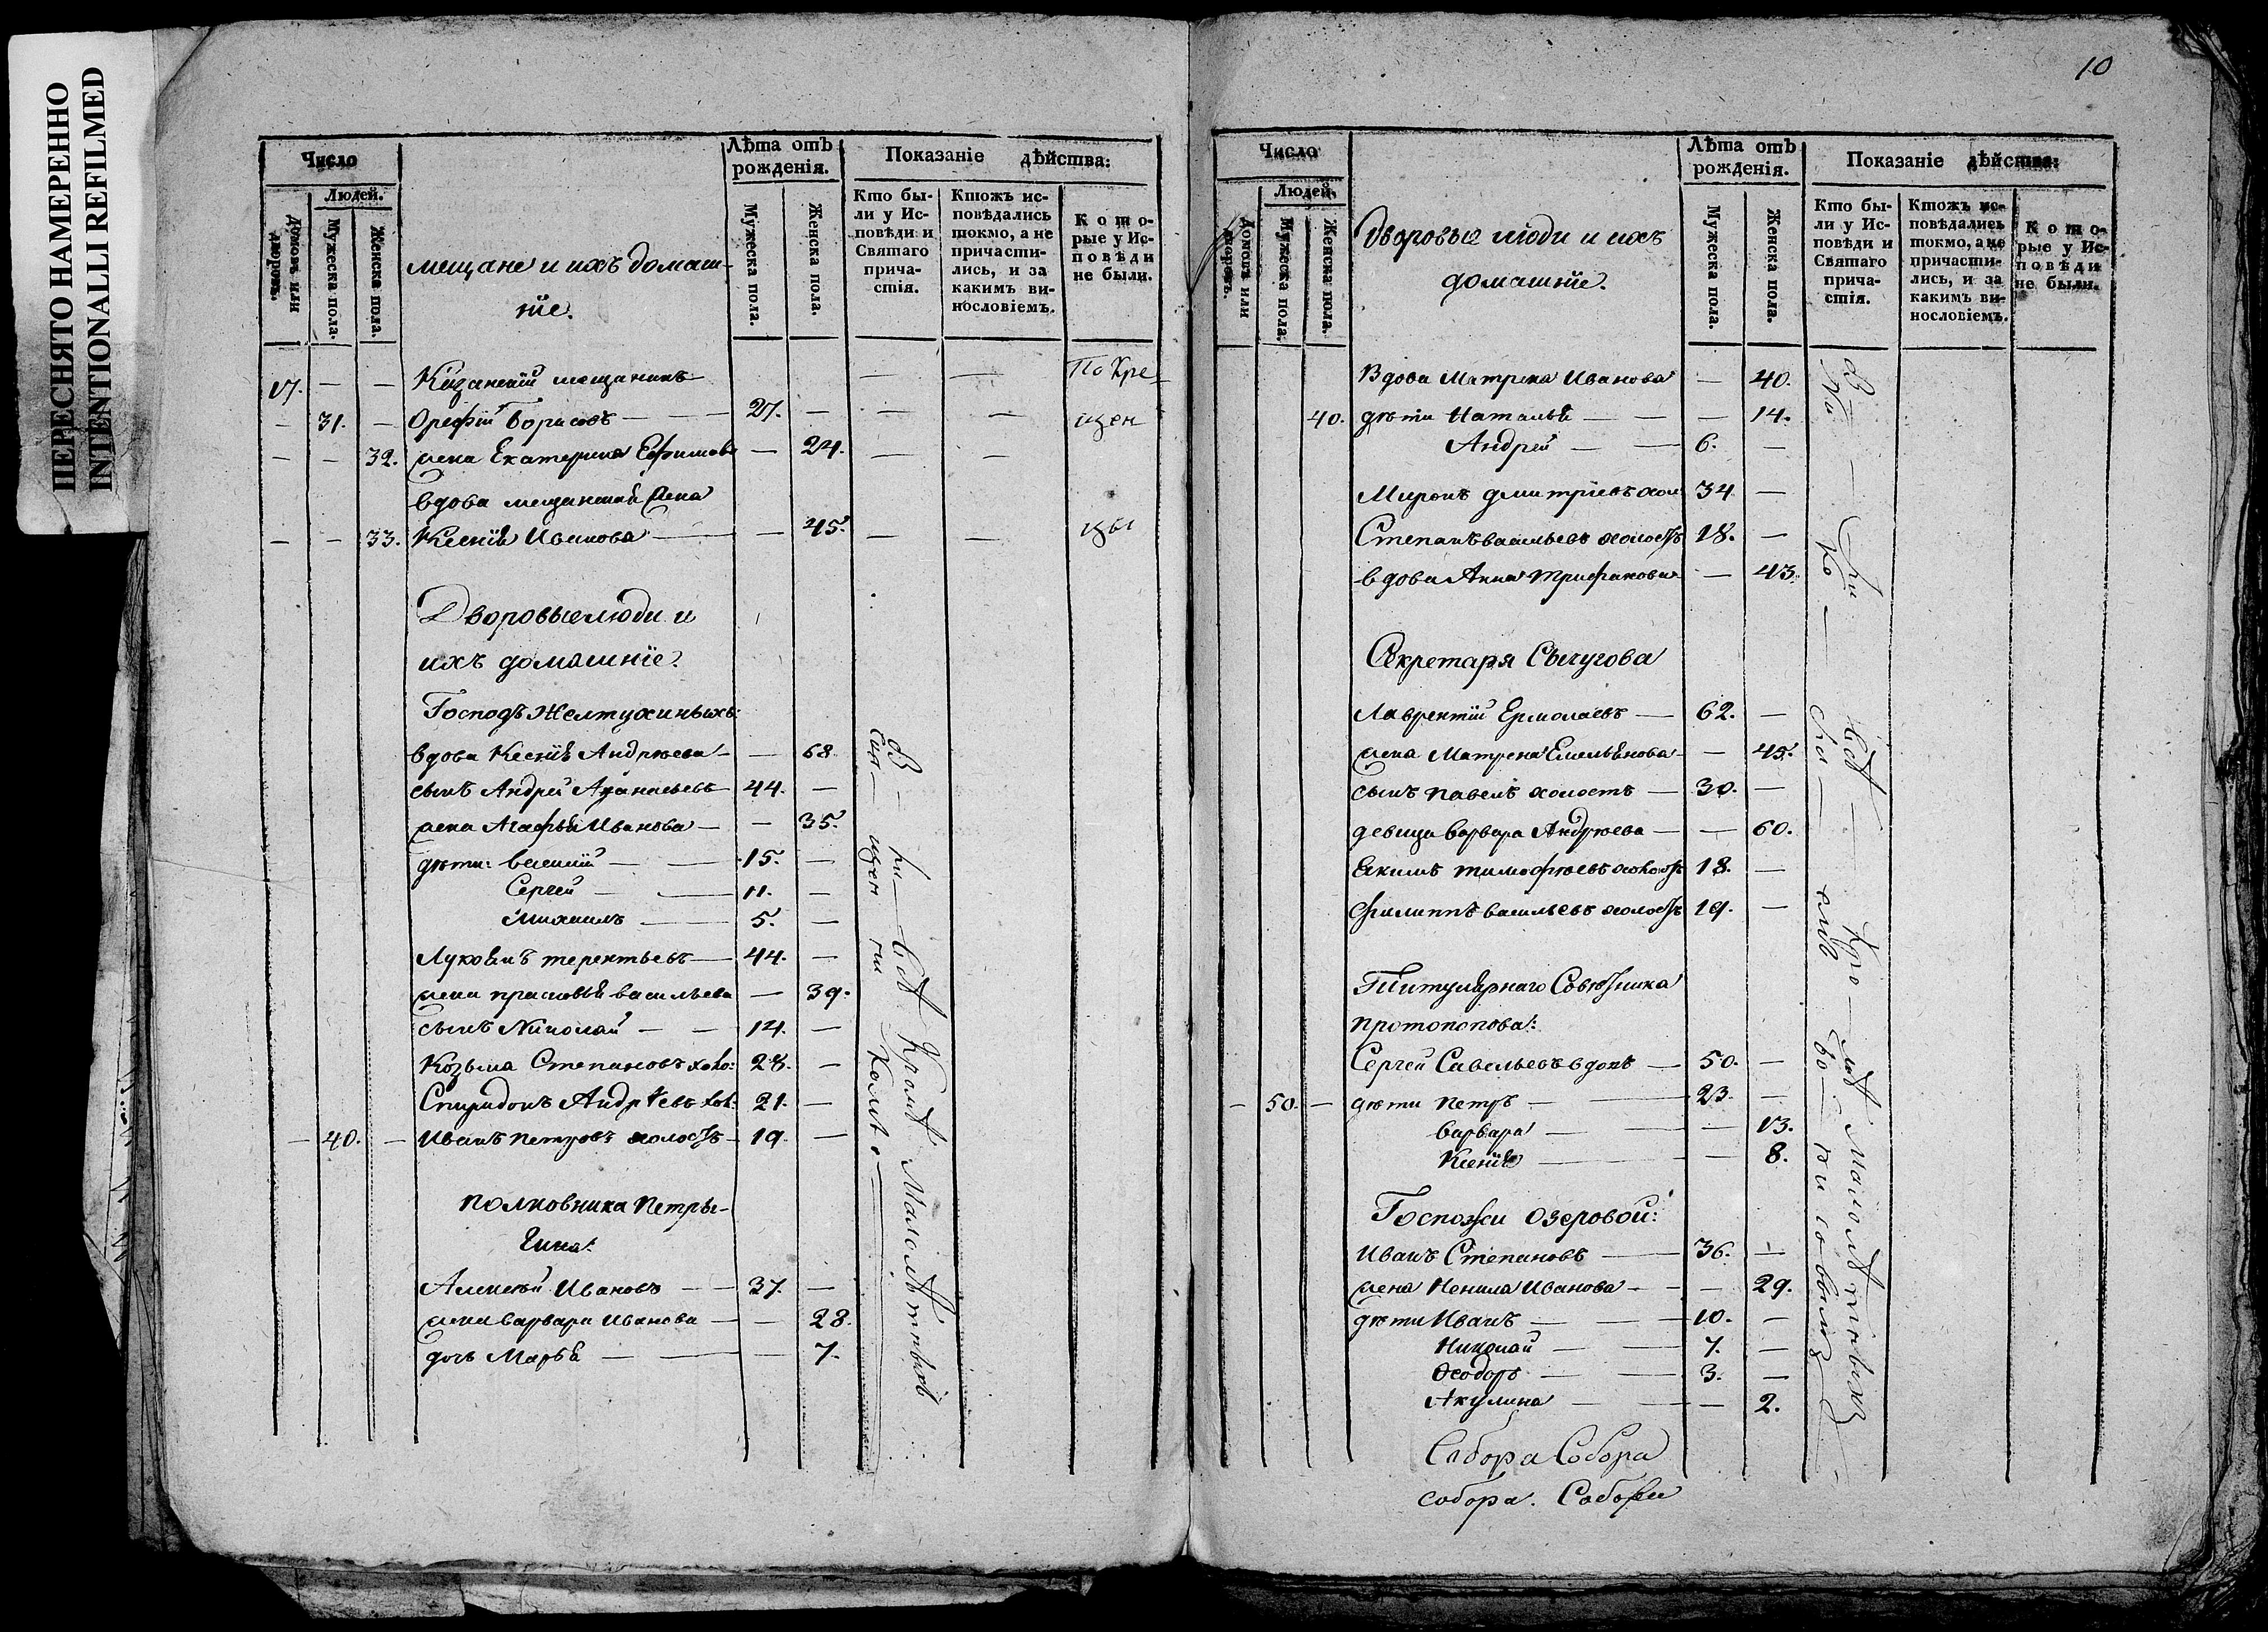 ПЕРЕСНЯТО НАМЕРЕННО
INTENTIONALLI REFILMED
Число
Людей.
Домовъ или дворовъ.
Мужеска пола.
Женска пола.
мещане и ихъ домаш-
ніе.
Лѣта отъ
рожденія.
Мужеска пола.
Женска пола.
Показаніе дѣйства:
Кто бы-
ли у Ис-
повѣди и
Святаго
прича-
стія.
Ктожъ ис-
повѣдались
токмо, а не
причасти-
лись, и за
какимъ ви-
нословіемъ.
Кото-
рые у Ис-
повѣди
не были.
17. — — Казанскій мещанинъ — — По Кре-
— 31. — Орефій Борисовъ — — 27. — — — щен
— — 32. жена Екатерина Ефимова — 24. — —
вдова мещанская жена
— — 33. Ксенія Иванова — — 45. — — цы
Дворовые люди и
ихъ домашніе.
Господъ Желтухиныхъ:
вдова Ксенія Андрѣева — — 68
сынъ Андрей Афанасьевъ 44. —
жена Агафья Иванова — — 35.
дѣти: Василій — — 15. —
Сергей — — 11. —
Михаилъ — 5. —
Лукоянъ терентьевъ — 44. —
жена прасковья васильева — 39.
сынъ Николай — — 14. —
Козьма Степановъ холо: 28. —
Спиридонъ Андреевъ хол: 21. —
— 40. — Иванъ петровъ холостъ — 19. —
полковника Петры-
гина:
Алексѣй Ивановъ — — 37. —
жена варвара Иванова — — 28.
дочь Марья — — — 7.
В ри всѣ Кромѣ Малолѣтныхъ
10
Число
Людей.
Домовъ или дворовъ.
Мужеска пола.
Женска пола.
Дворовые люди и ихъ
домашніе.
Лѣта отъ
рожденія.
Мужеска пола.
Женска пола.
Показаніе дѣйства:
Кто бы-
ли у Ис-
повѣди и
Святаго
прича-
стія.
Ктожъ ис-
повѣдались
токмо, а не
причасти-
лись, и за
какимъ ви-
нословіемъ.
Кото-
рые у Ис-
повѣди
не были.
Вдова Матрена Иванова — 40.
40. дѣти Наталья — — — 14.
Андрей — — 6. —
Миронъ дмитріевъ хол: 34. —
Степанъ васильевъ холостъ 18. —
вдова Анна Трифанова — 43.
Секретаря Сычугова
Лаврентій Ермолаевъ — 62. —
жена Матрена Емельянова — — 45.
сынъ павелъ холостъ — 30. —
девица варвара Андрѣева — — 60.
Екимъ тимофѣевъ холостъ 18. —
Филиппъ васильевъ холостъ 19. —
Титулярнаго Совѣтника
протопопова:
Сергей Савельевъ вдовъ — 50. —
— 50. — дѣти петръ — — 23. —
варвара — — 13.
Ксенія — — 8.
Госпожи Озеровой:
Иванъ Степановъ — 36. —
жена Ненила Иванова — — 29.
дѣти Иванъ — — 10. —
Николай — 7. —
Ѳеодоръ — — 3. —
Акулина — — 2.
Собора Собора
собора. Собора
Малолѣтныхъ